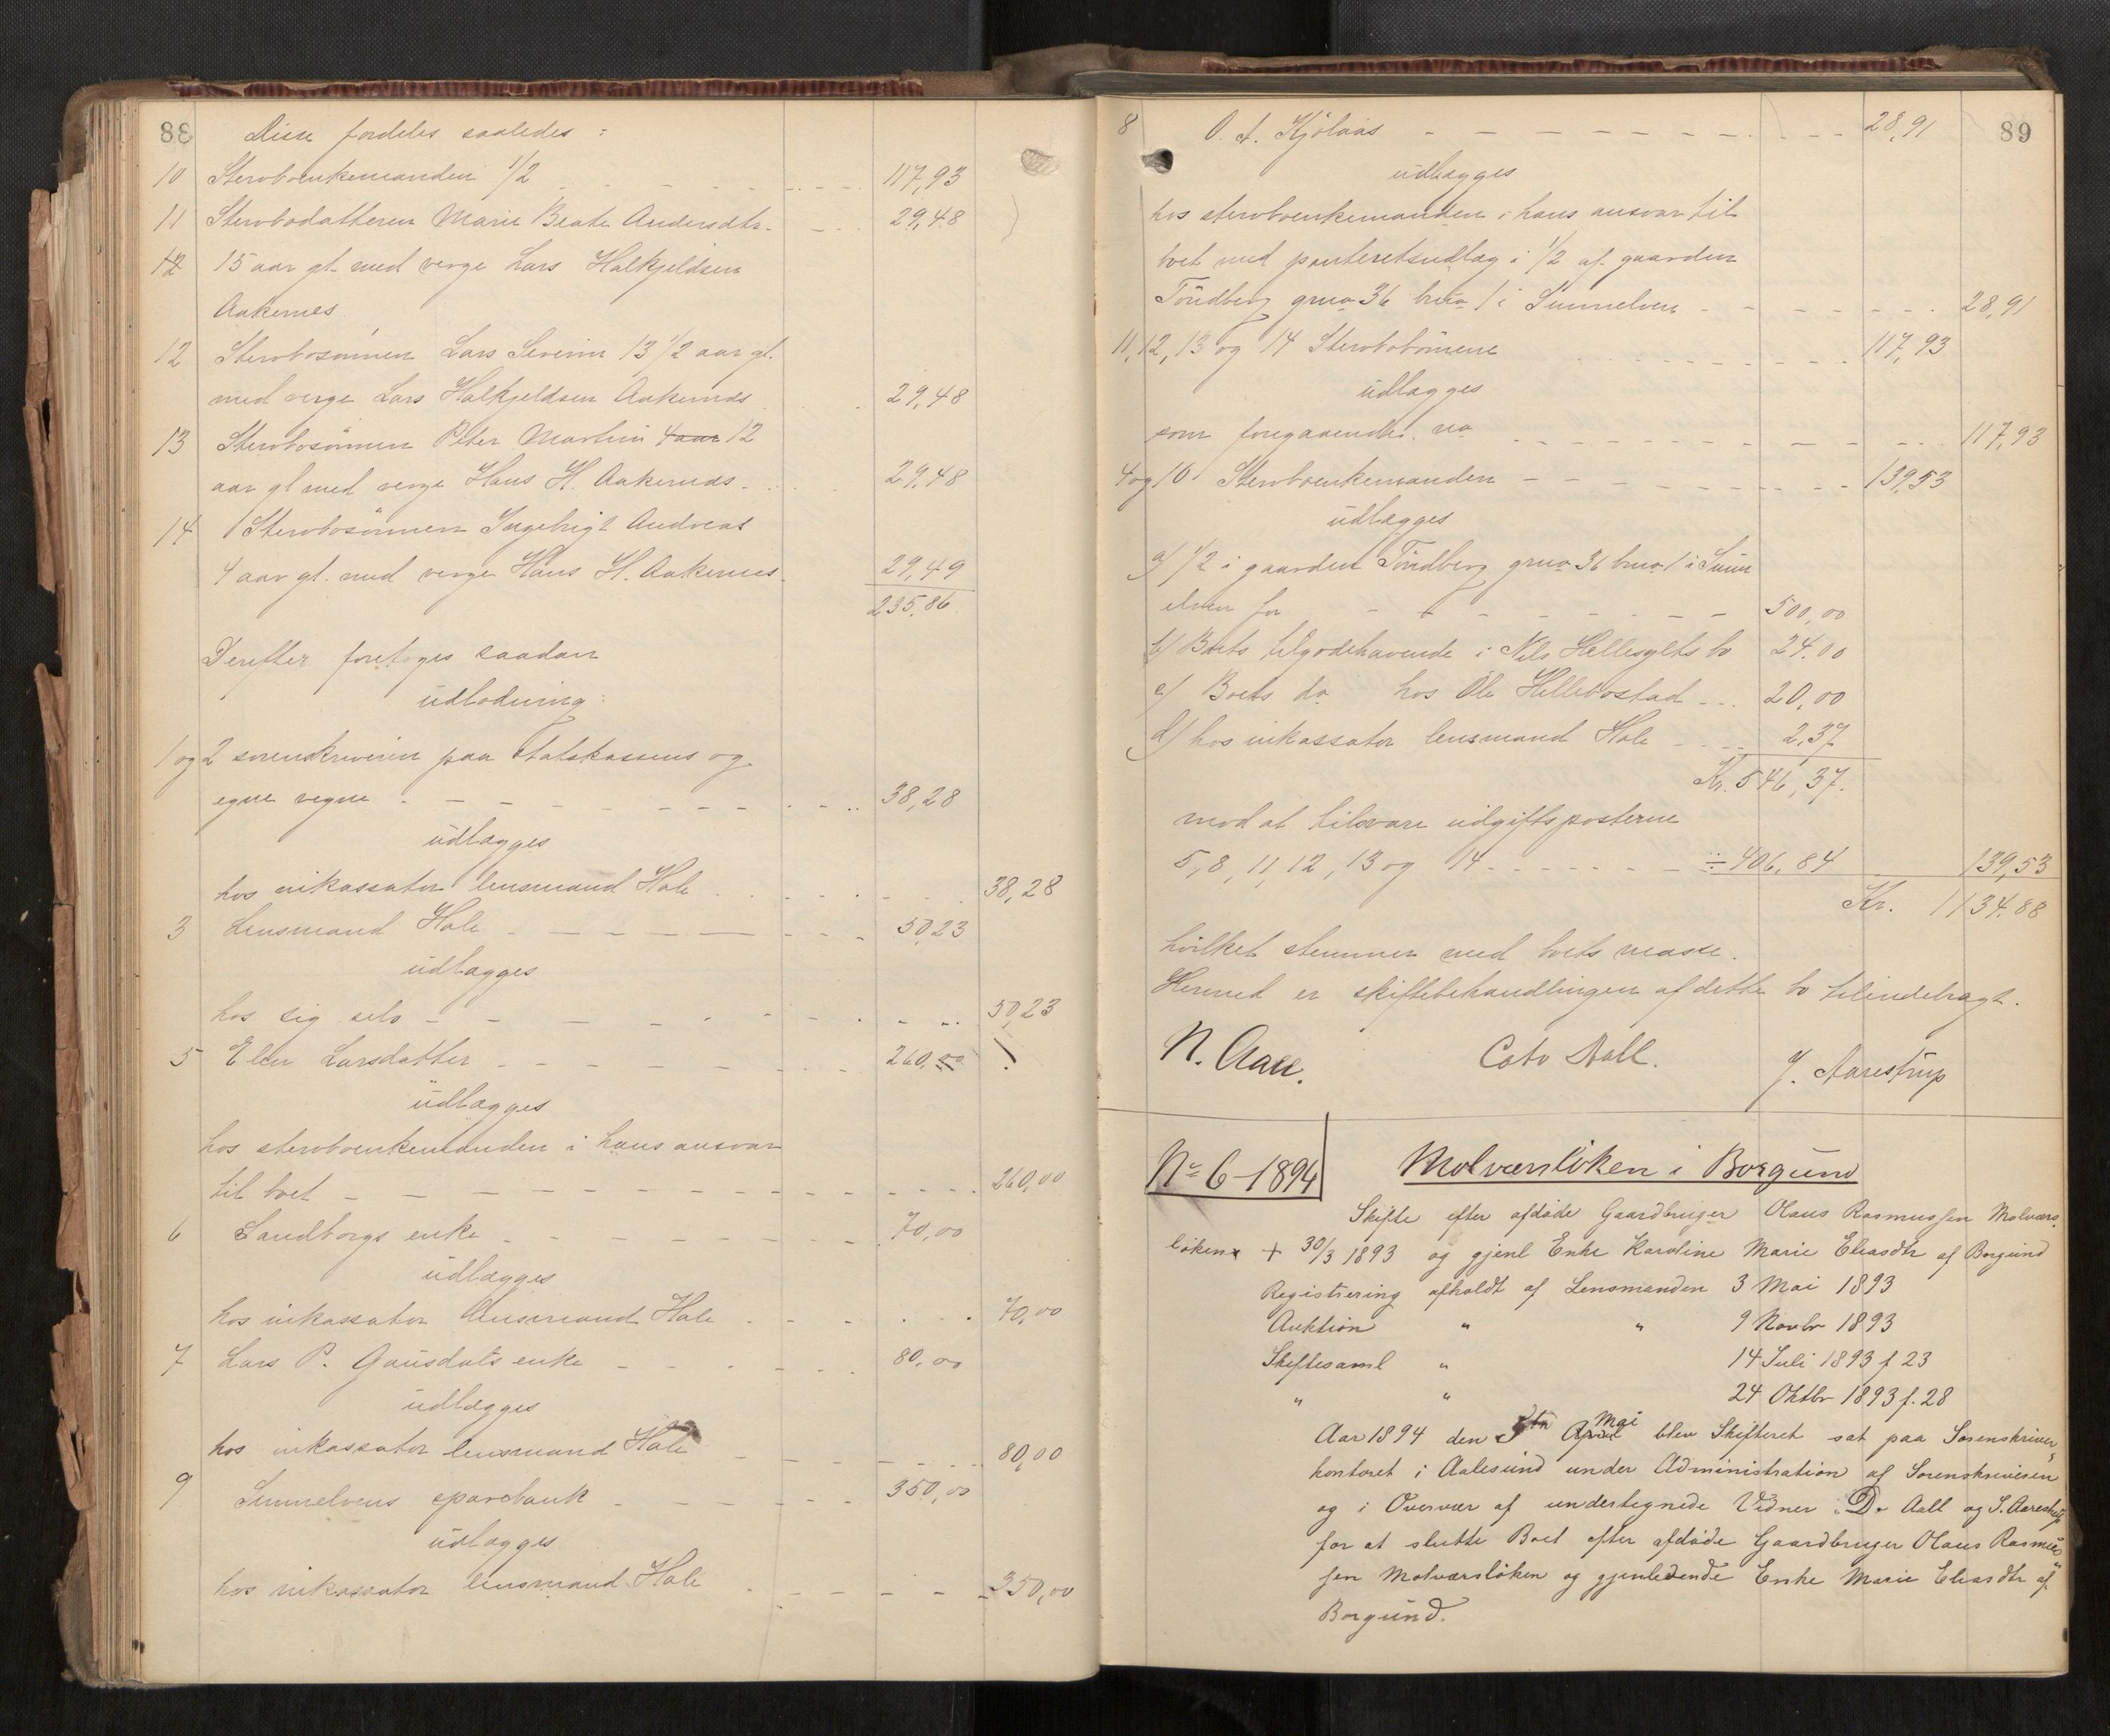 88
Disse fordeles saaledes:
10 Stervboenkemanden 1/2 117,93
11 Stervbodatteren Marie Beate Andersdtr. 29,48
12 15 aar gl. med verge Lars Halkjeldsen
Aakernes
12 Stervbosønnen Lars Severin 13 1/2 aar gl.
med verge Lars Halkjeldsen Aakernes 29,48
13 Stervbosønnen Peter Martin 4 aar 12
aar gl med verge Hans H. Aakernes. 29,48
14 Stervbosønnen Ingebrigt Andreas
4 aar gl. med verge Hans H. Aakernes. 29,49
235,86
Derefter foretoges saadan
udlodning:
1 og 2 sorenskriveren paa statskassens og
egne vegne 38,28
udlægges
hos inkassator lensmand Hole 38,28
3 Lensmand Hole 50,23
udlægges
hos sig selv 50,23
5 Elen Larsdatter 260,00
udlægges
hos stervboenkemanden i hans ansvar
til boet 260,00
6 Landborgs enke 70,00
udlægges
hos inkassator lensmand Hole 70,00
7 Lars P. Gausdals enke 80,00
udlægges
hos inkassator lensmand Hole 80,00
9 Sunnelvens sparebank 350,00
udlægges
hos inkassator lensmand Hole 350,00
89
8 O. A. Kjølaas 28,91
udlægges
hos stervboenkemanden i hans ansvar til
boet med panteretsudlæg i 1/2 af gaarden
Tondberg grno 36 brno 1 i Sunnelven 28,91
11, 12, 13 og 14 Stervbobørnene 117,93
udlægges
som foregaaende no 117,93
4 og 10 Stervboenkemanden 139,53
udlægges
a) 1/2 i gaarden Tondberg grno 36 brno 1 i Sunn
elven for 500,00
b) Boets tilgodehavende i Nils Hellesylts bo 24,00
c) Boets do hos Ole Hellebostad 20,00
d) hos inkassator lensmand Hole 2,37
Kr. 546,37.
mod at tilsvare udgiftsposterne
5, 8, 11, 12, 13 og 14 ÷ 406,84 139,53
Kr. 1134,88
hvilket stemmer med boets masse.
Hermed er skiftebehandlingen af dette bo tilendebragt.
N. Aall. Cato Aall. J. Aarestrup
No 6 - 1894 Molværsløken i Borgund
Skifte efter afdøde Gaardbruger Olaus Rasmussen Molværs
løken + 30/3 1893 og gjenl Enke Karoline Marie Eliasdtr af Borgund
Registrering afholdt af Lensmanden 3 Mai 1893
Auktion " " 9 Novbr 1893
Skiftesaml " 14 Juli 1893 f 23
" " 24 Oktbr 1893 f. 28
Aar 1894 den 5te April Mai blev Skifteret sat paa Sorenskriver
kontoret i Aalesund under Administration af Sorenskriveren
og i Overvær af undertegnede Vidner: D. Aall og S. Aarestrup
for at slutte Boet efter afdøde Gaardbruger Olaus Rasmus
sen Molværsløken og gjenledende Enke Marie Eliasdtr af
Borgund.